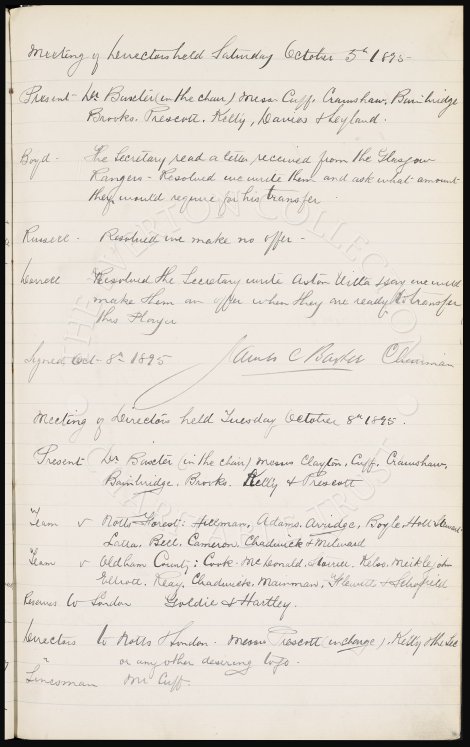 Meeting of Directors held Saturday October 5th 1895-
Present - Dr Baxter (in the chair) Messrs Cuff, Crawshaw, Bainbridge
Brooks. Prescott. Kelly, Davies & Leyland.
Boyd - The Secretary read a letter received from the Glasgow
Rangers - Resolved we write them and ask what amount
they would require for his transfer -
Russell - Resolved we make no offer -
Resolved the Secretary write Aston Villa & say we will
make them an offer when they are ready to transfer
this Player
Signed Oct 8th 1895 James C Baxter Chairman
Meeting of Directors held Tuesday October 8th 1895.
Present Dr Baxter (in the chair) Messrs Clayton, Cuff, Crawshaw,
Bainbridge. Brooks. Kelly & Prescott
Team v Notts Forest: Hillman, Adams, Arridge, Boyle, Holt Stewart
Latta. Bell. Cameron. Chadwick & Milward
Team v Oldham County: Cook. McDonald. Storrier. Kelso. Meiklejohn
Elliott. Reay, Chadwick. Mainman, Hewitt & Schofield
Reserves to London Goldie & Hartley.
Directors to Notts & London - Messrs Prescott (in charge), Kelly & the Sec
or any other desiring to go -
" Linesman Mr Cuff.
THE EVERTON COLLECTION
CHARITABLE TRUST